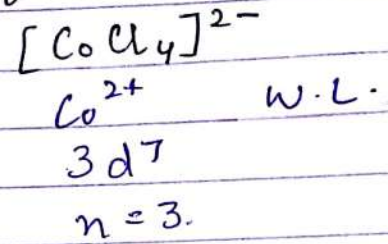 [CoCl₄]²⁻
Co²⁺ W.L.
3d⁷
n = 3.